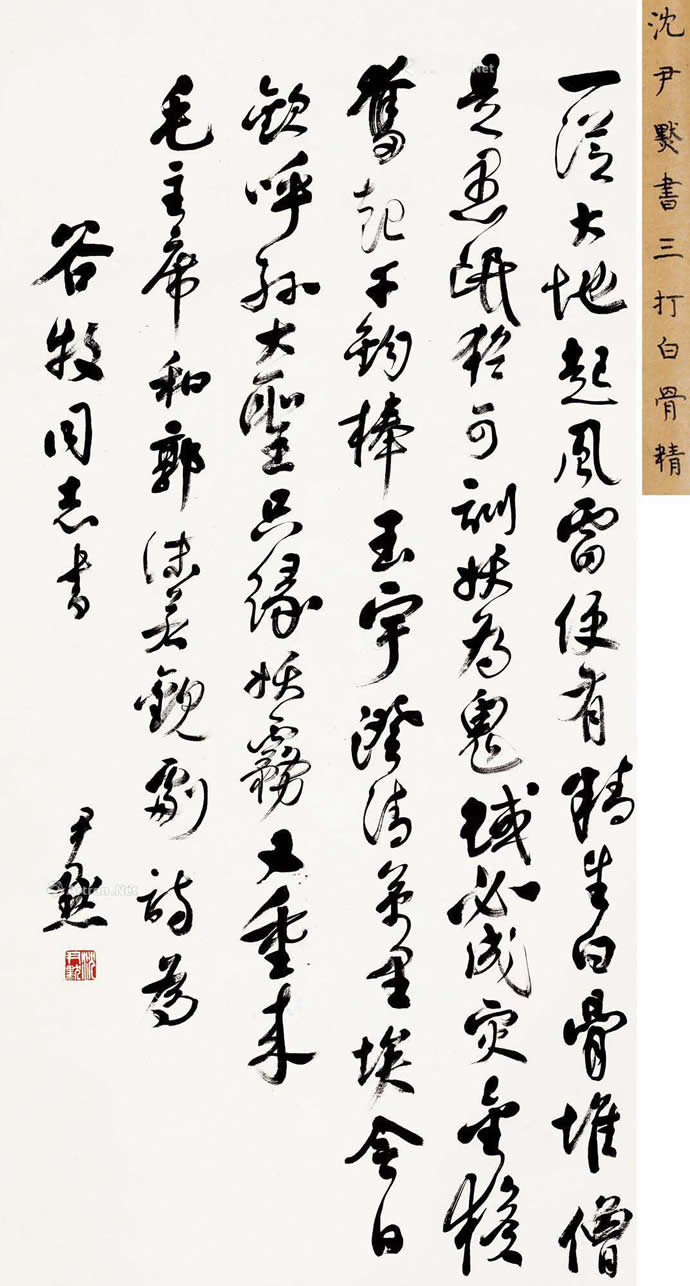 沈尹默書三打白骨精
一從大地起風雷便有精生白骨堆僧
是愚氓猶可訓妖為鬼蜮必成災金猴
奮起千鈞棒玉宇澄清萬里埃今日
歡呼孫大聖只緣妖霧又重來
毛主席和郭沫若觀劇詩為
谷牧同志書
尹默
沈尹默
Artron.Net